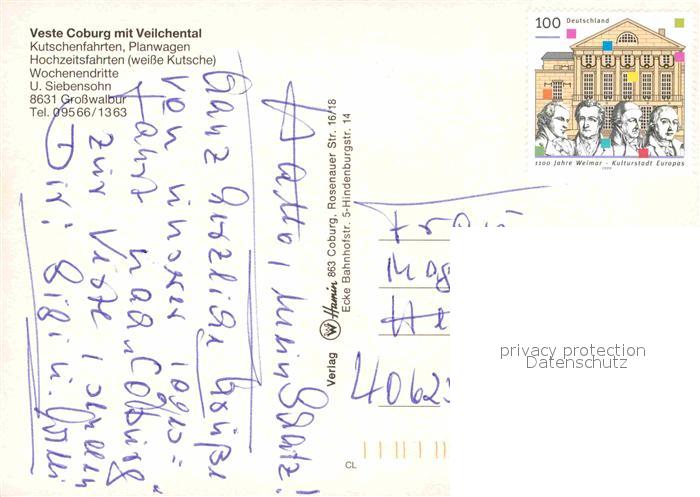 Veste Coburg mit Veilchental
Kutschenfahrten, Planwagen
Hochzeitsfahrten (weiße Kutsche)
Wochenendritte
U. Siebensohn
8631 Großwalbur
Tel. 09566/1363
100 Deutschland
1100 Jahre Weimar - Kulturstadt Europas
1999
Hallo, mein Schatz!
Ganz herzliche Grüße
von unserer
Fahrt nach Coburg
zur Veste
Dir:
Verlag Hamin 863 Coburg, Rosenauer Str. 16/18
Ecke Bahnhofstr. 5-Hindenburgstr. 14
Frau
4062
CL
privacy protection
Datenschutz